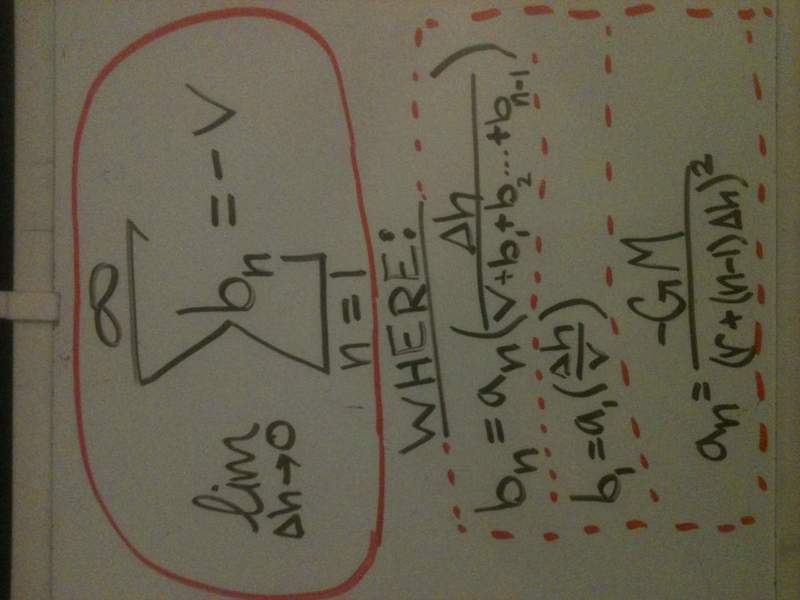 lim Δh→0 ∞ Σ n=1 bₙ = -V
WHERE:
bₙ = aₙ(Δh / V+b₁+b₂...+bₙ₋₁)
b₁ = a₁(Δh / V)
aₙ = -GM / (r+(n-1)Δh)²